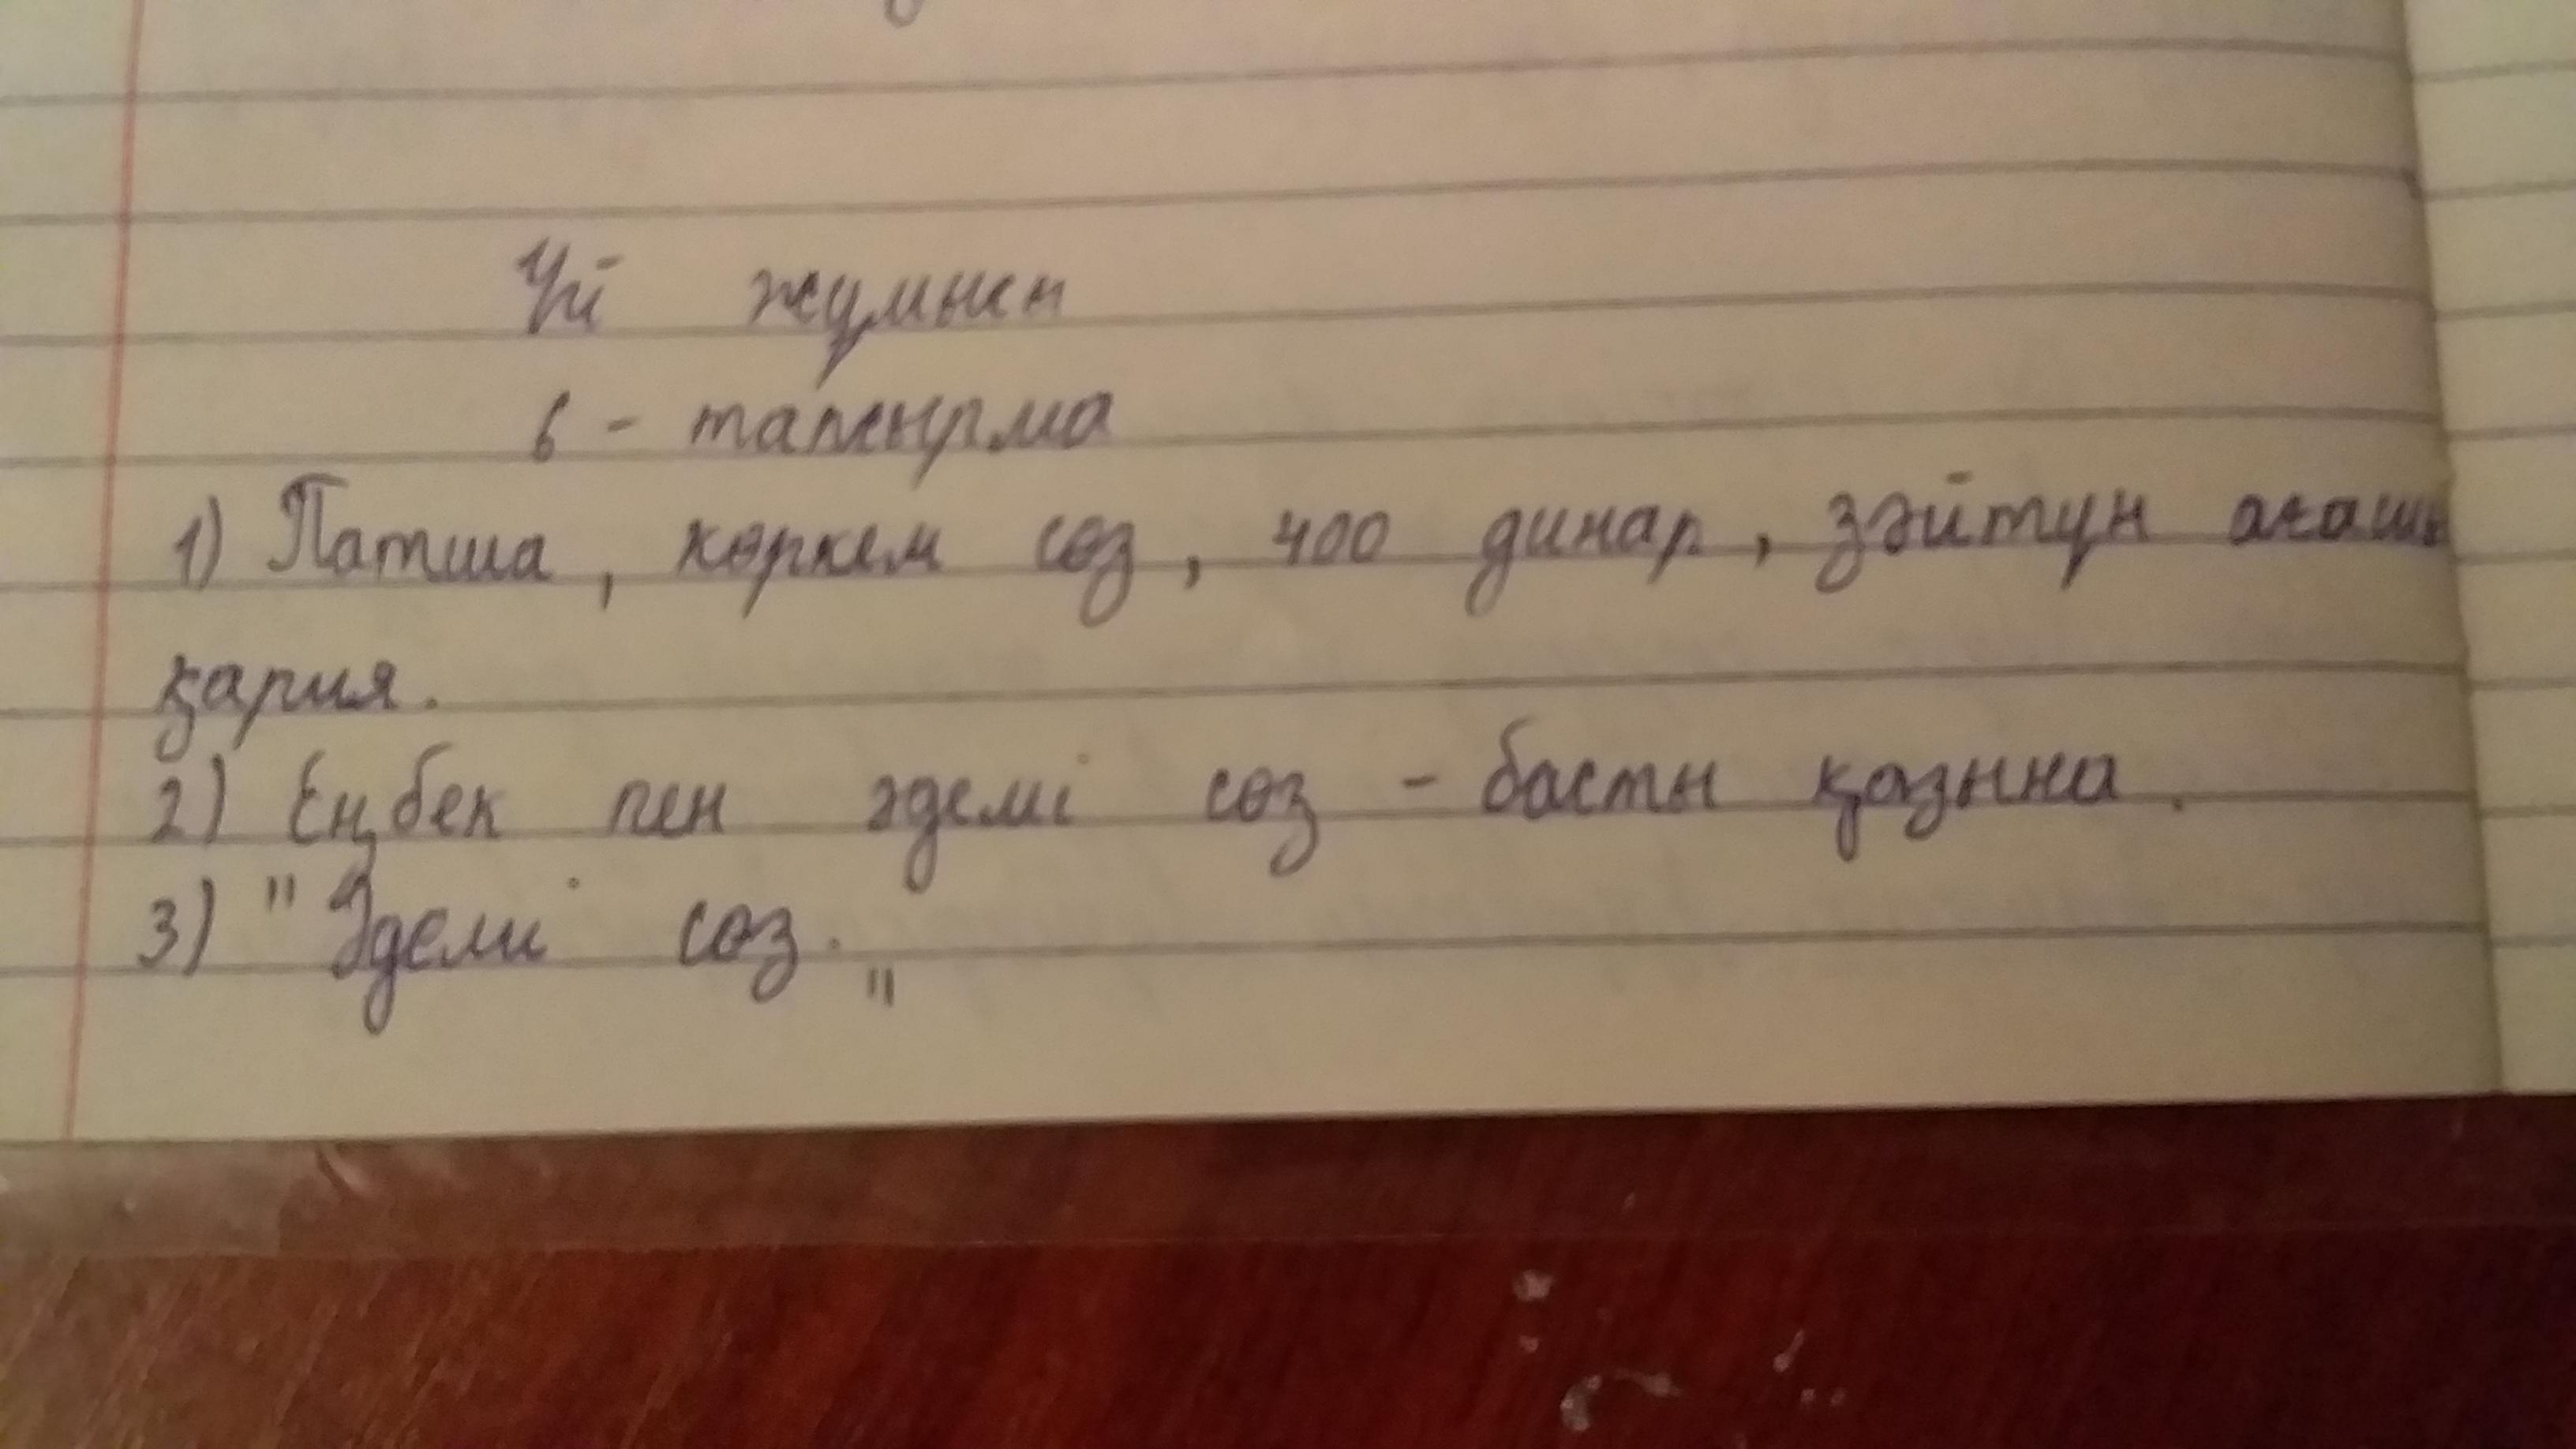 Үй жұмысы
6 - тапсырма
1) Патша, көркем сөз, 400 динар, зәйтүн ағашы
қария.
2) Еңбек пен әдемі сөз - басты қазына.
3) "Әдемі сөз."